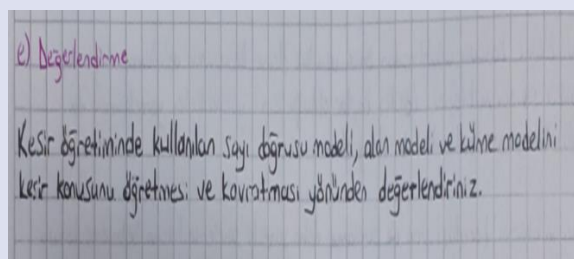 e) Değerlendirme
Kesir öğretiminde kullanılan sayı doğrusu modeli, alan modeli ve küme modelini
kesir konusunu öğretmesi ve kavratması yönünden değerlendiriniz.